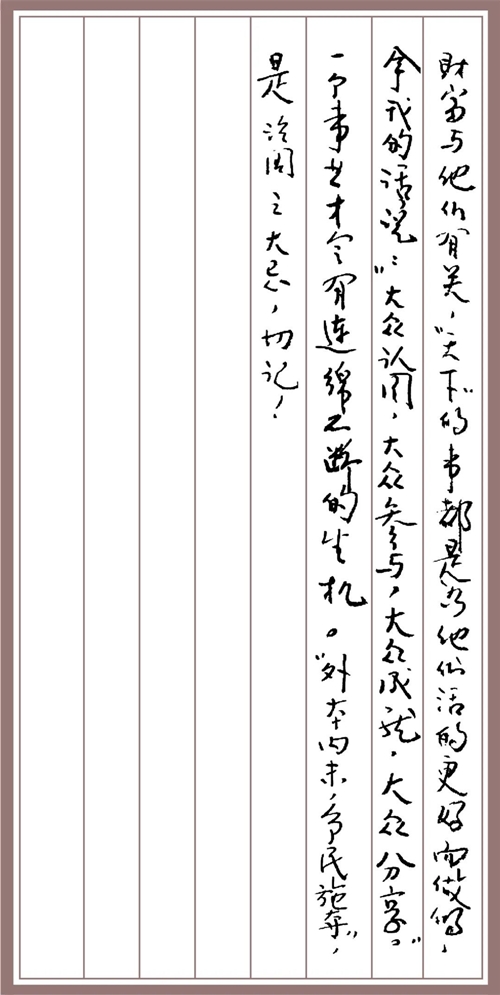 财富与他们有关，“天下”的事都是为他们活的更好而做的，
拿我的话说：“大众认同，大众参与，大众成就，大众分享。”
一个事业才会有连绵不断的生机。“外本内末，争民施夺”，
是治国之大忌，切记！